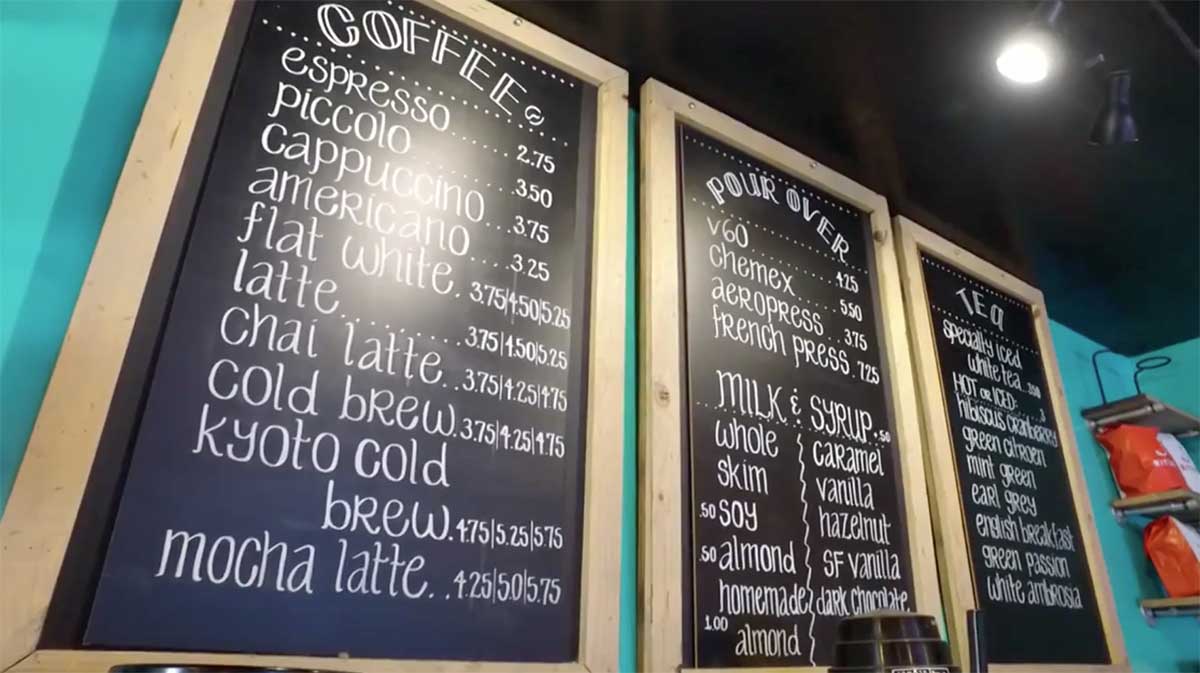 COFFEE
espresso......2.75
piccolo........3.50
cappuccino...3.75
americano....3.25
flat white.3.75|4.50|5.25
latte..........3.75|4.50|5.25
chai latte..3.75|4.25|4.75
cold brew.3.75|4.25|4.75
kyoto cold
brew.4.75|5.25|5.75
mocha latte..4.25|5.0|5.75
POUR OVER
v60........4.25
chemex......5.50
aeropress..3.75
french press.7.25
MILK & SYRUP.50
whole
skim
.50 soy
.50 almond
homemade
1.00 almond
caramel
vanilla
hazelnut
SF vanilla
dark chocolate
TEA
specialty iced
white tea..3.00
HOT or ICED:.....3
hibiscus cranberry
green citroen
mint green
earl grey
english breakfast
green passion
white ambrosia